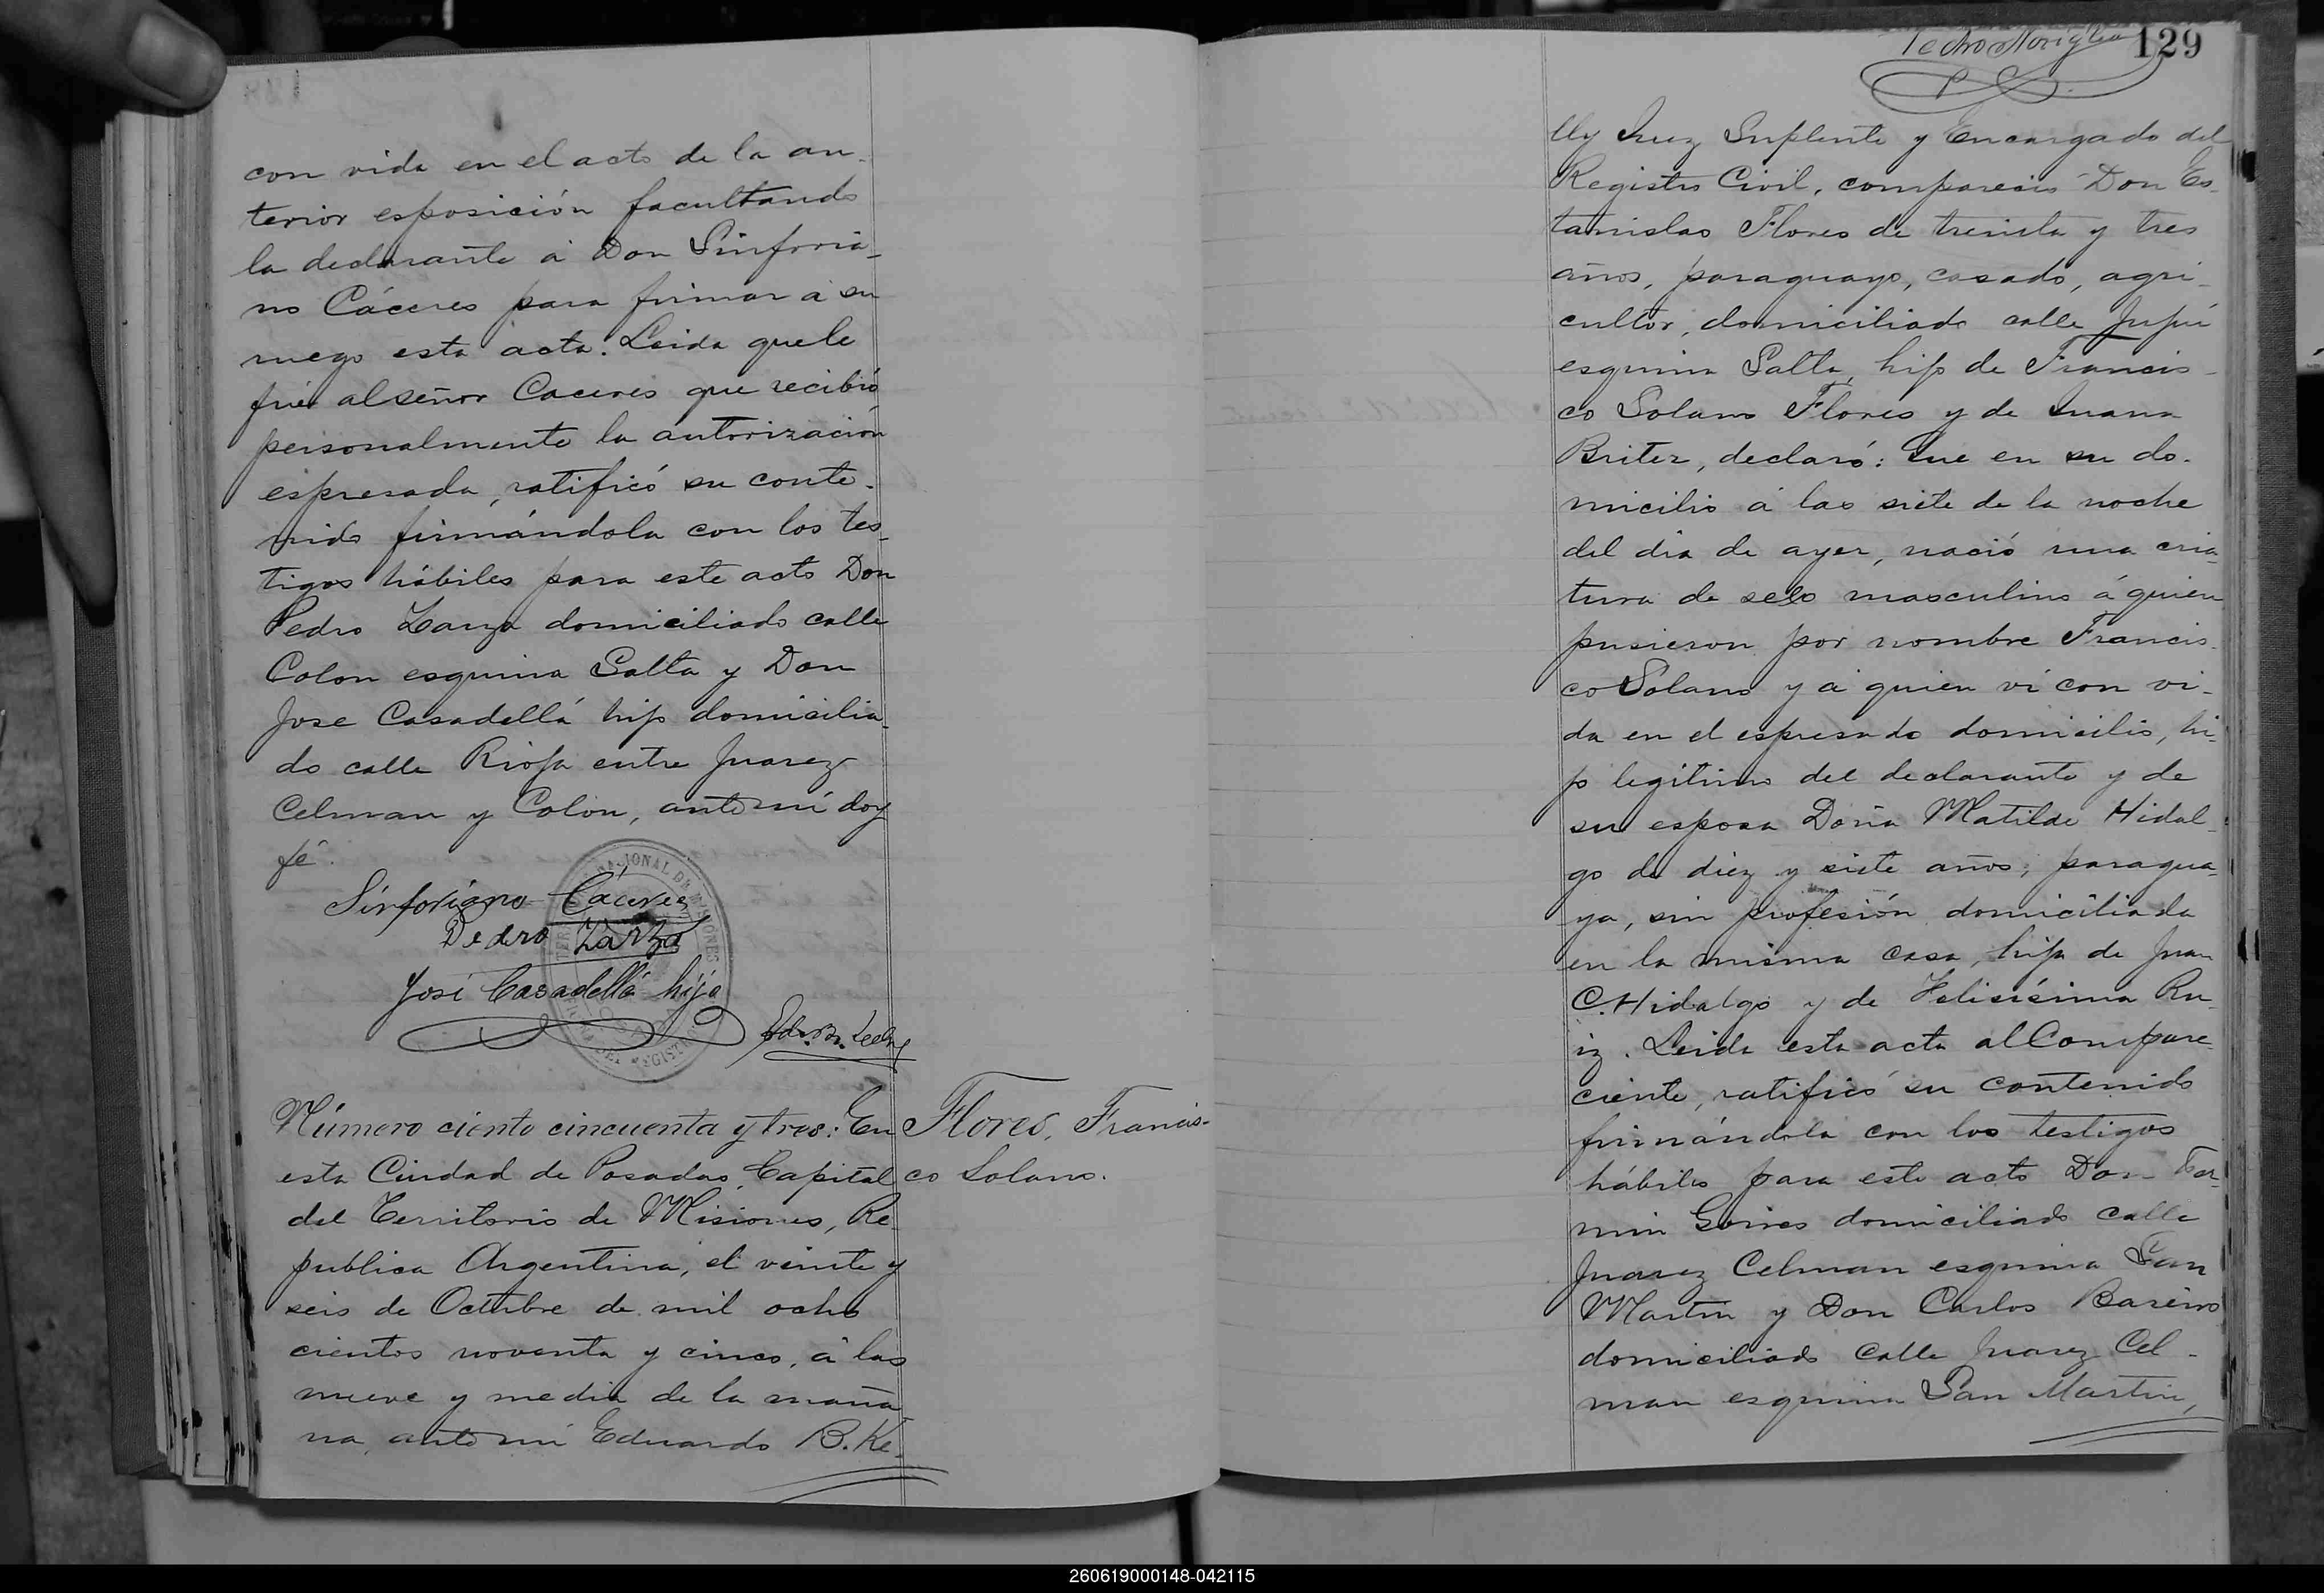 con vida en el acto de la an-
terior esposición facultando
la declarante á Don Sinforia-
no Cáceres para firmar á su
ruego esta acta. Leida que le
fué al señor Caceres que recibió
personalmente la autorización
espresada, ratificó su conte-
nido firmándola con los tes-
tigos hábiles para este acto Don
Pedro Zarza domiciliado calle
Colon esquina Salta y Don
Jose Casadellá hijo domicilia-
do calle Rioja entre Juarez
Celman y Colon, ante mí doy
fé.
Sinforiano Cáceres
Pedro Zarza
José Casadellá hijo
Número ciento cincuenta y tres: En
esta Ciudad de Posadas, Capital
del Territorio de Misiones, Re-
publica Argentina, el veinte y
seis de Octubre de mil ocho
cientos noventa y cinco, á las
nueve y media de la maña
na, ante mí Eduardo B. Ke-
Flores, Francis-
co Solano.
129
lly Juez Suplente y Encargado del
Registro Civil, compareció Don Es-
tanislao Flores de treinta y tres
años, paraguayo, casado, agri-
cultor, domiciliado calle Jujuí
esquina Salta, hijo de Francis-
co Solano Flores y de Juana
Britez, declaró: Que en su do-
micilio á las siete de la noche
del dia de ayer, nació una cria-
tura de sexo masculino á quien
pusieron por nombre Francis-
co Solano y á quien ví con vi-
da en el espresado domicilio, hi-
jo legítimo del declarante y de
su esposa Doña Matilde Hidal-
go de diez y siete años, paragua-
ya, sin profesión domiciliada
en la misma casa, hija de Juan
C. Hidalgo y de Felisísima Ru-
iz. Leida esta acta al Compare-
ciente, ratificó su contenido
firmándola con los testigos
hábiles para este acto Don Fer-
min domiciliado calle
Juarez Celman esquina San
Martin y Don Carlos Bareiro
domiciliado calle Juarez Cel-
man esquina San Martin,
260619000148-042115